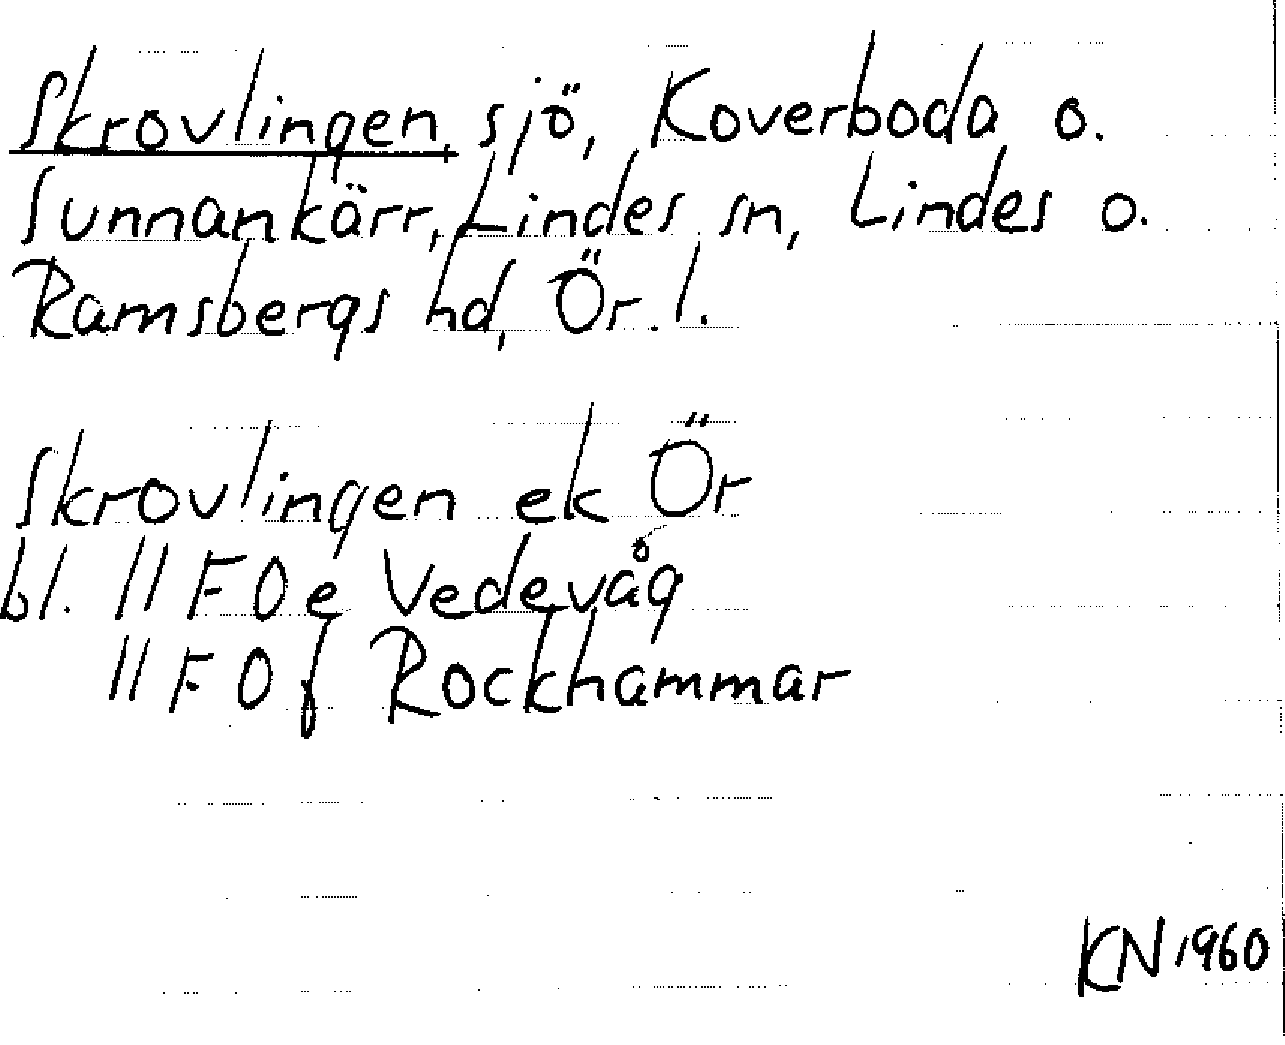 Skrovlingen, sjö, Koverboda o.
Sunnankärr, Lindes sn, Lindes o.
Ramsbergs hd, Ör. l.
Skrovlingen ek Ör
bl. 11 F 0 e Vedevåg
11 F 0 f Rockhammar
KN 1960